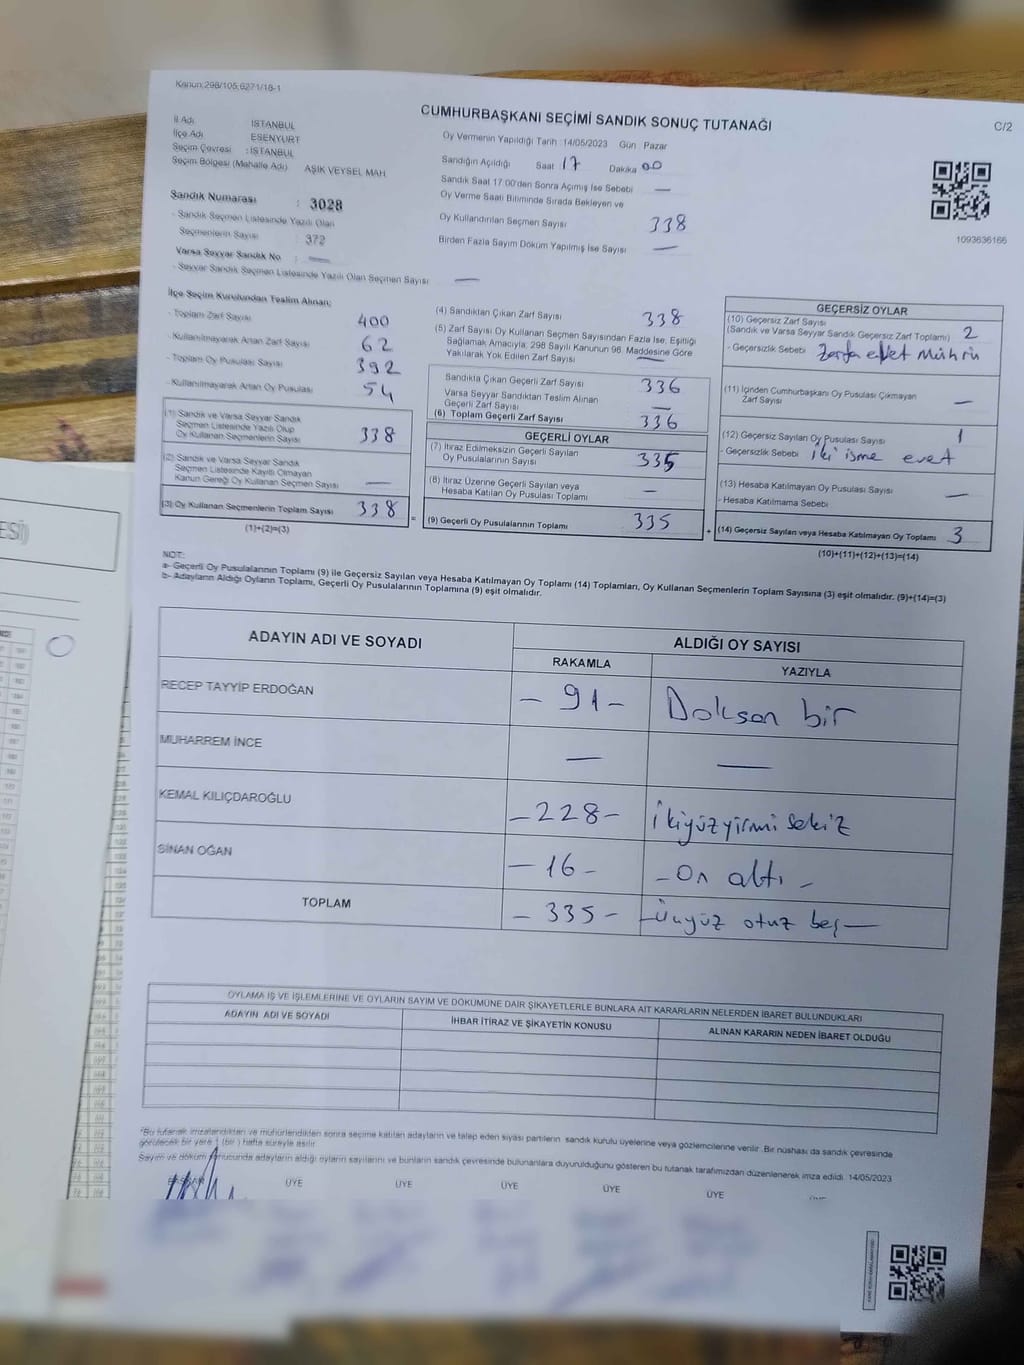 Kanun:298/105,6271/16-1
CUMHURBAŞKANI SEÇİMİ SANDIK SONUÇ TUTANAĞI
C/2
İl Adı İSTANBUL
İlçe Adı ESENYURT
Seçim Çevresi : İSTANBUL
Seçim Bölgesi (Mahalle Adı) AŞIK VEYSEL MAH.
Sandık Numarası : 3028
- Sandık Seçmen Listesinde Yazılı Olan
Seçmenlerin Sayısı : 372
Varsa Seyyar Sandık No : —
- Seyyar Sandık Seçmen Listesinde Yazılı Olan Seçmen Sayısı —
Oy Vermenin Yapıldığı Tarih :14/05/2023 Gün Pazar
Sandığın Açıldığı Saat 17 Dakika 00
Sandık Saat 17.00'den Sonra Açımış İse Sebebi —
Oy Verme Saati Bitiminde Sırada Bekleyen ve
Oy Kullandırılan Seçmen Sayısı 338
Birden Fazla Sayım Döküm Yapılmış İse Sayısı —
1093636166
İlçe Seçim Kurulundan Teslim Alınan;
- Toplam Zarf Sayısı 400
- Kullanılmayarak Artan Zarf Sayısı 62
- Toplam Oy Pusulası Sayısı 392
- Kullanılmayarak Artan Oy Pusulası 54
(1) Sandık ve Varsa Seyyar Sandık
Seçmen Listesinde Yazılı Olup
Oy Kullanan Seçmenlerin Sayısı 338
(2) Sandık ve Varsa Seyyar Sandık
Seçmen Listesinde Kayıtlı Olmayan
Kanun Gereği Oy Kullanan Seçmen Sayısı —
(3) Oy Kullanan Seçmenlerin Toplam Sayısı 338
(1)+(2)=(3)
=
(4) Sandıktan Çıkan Zarf Sayısı 338
(5) Zarf Sayısı Oy Kullanan Seçmen Sayısından Fazla İse, Eşitliği
Sağlamak Amacıyla; 298 Sayılı Kanunun 98. Maddesine Göre
Yakılarak Yok Edilen Zarf Sayısı —
Sandıkta Çıkan Geçerli Zarf Sayısı 336
Varsa Seyyar Sandıktan Teslim Alınan
Geçerli Zarf Sayısı —
(6) Toplam Geçerli Zarf Sayısı 336
GEÇERLİ OYLAR
(7) İtiraz Edilmeksizin Geçerli Sayılan
Oy Pusulalarının Sayısı 335
(8) İtiraz Üzerine Geçerli Sayılan veya
Hesaba Katılan Oy Pusulası Toplamı —
(9) Geçerli Oy Pusulalarının Toplamı 335
+
GEÇERSİZ OYLAR
(10) Geçersiz Zarf Sayısı
(Sandık ve Varsa Seyyar Sandık Geçersiz Zarf Toplamı) 2
- Geçersizlik Sebebi Zarfa evet Mührü
(11) İçinden Cumhurbaşkanı Oy Pusulası Çıkmayan
Zarf Sayısı —
(12) Geçersiz Sayılan Oy Pusulası Sayısı 1
- Geçersizlik Sebebi iki isme evet
(13) Hesaba Katılmayan Oy Pusulası Sayısı —
- Hesaba Katılmama Sebebi
(14) Geçersiz Sayılan veya Hesaba Katılmayan Oy Toplamı 3
(10)+(11)+(12)+(13)=(14)
NOT:
a- Geçerli Oy Pusulalarının Toplamı (9) ile Geçersiz Sayılan veya Hesaba Katılmayan Oy Toplamı (14) Toplamları, Oy Kullanan Seçmenlerin Toplam Sayısına (3) eşit olmalıdır. (9)+(14)=(3)
b- Adayların Aldığı Oyların Toplamı, Geçerli Oy Pusulalarının Toplamına (9) eşit olmalıdır.
ADAYIN ADI VE SOYADI
ALDIĞI OY SAYISI
RAKAMLA YAZIYLA
RECEP TAYYİP ERDOĞAN - 91 - Doksan bir
MUHARREM İNCE — —
KEMAL KILIÇDAROĞLU - 228 - ikiyüzyirmi sekiz
SİNAN OĞAN - 16 - - On altı -
TOPLAM - 335 - - Üçyüz otuz beş —
OYLAMA İŞ VE İŞLEMLERİNE VE OYLARIN SAYIM VE DÖKÜMÜNE DAİR ŞİKAYETLERLE BUNLARA AİT KARARLARIN NELERDEN İBARET BULUNDUKLARI
ADAYIN ADI VE SOYADI İHBAR İTİRAZ VE ŞİKAYETİN KONUSU ALINAN KARARIN NEDEN İBARET OLDUĞU
*Bu tutanak imzalandıktan ve mühürlendikten sonra seçime katılan adayların ve talep eden siyasi partilerin sandık kurulu üyelerine veya gözlemcilerine verilir. Bir nüshası da sandık çevresinde
görülecek bir yere 1 (bir) hafta süreyle asılır.
Sayım ve döküm sonucunda adayların aldığı oyların sayılarını ve bunların sandık çevresinde bulunanlara duyurulduğunu gösteren bu tutanak tarafımızdan düzenlenerek imza edildi. 14/05/2023
BAŞKAN ÜYE ÜYE ÜYE ÜYE ÜYE